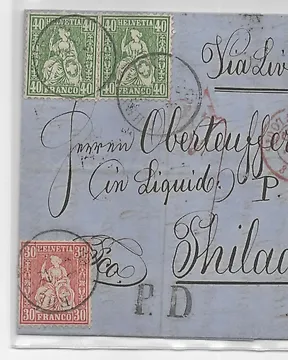 40 HELVETIA 40 40 HELVETIA 40
40 FRANCO 40 40 FRANCO 40
Via Liv
Herren Oberteuffer
in Liquid.
P.
30 HELVETIA 30
30 FRANCO 30
fco.
Philad
P.D